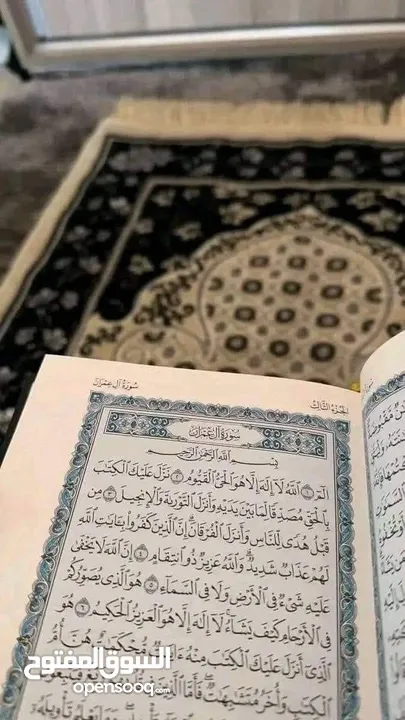 سورة آل عمران
الجزء الثالث
سورة آل عمران
بسم الله الرحمن الرحيم
الٓمٓ ١ ٱللَّهُ لَآ إِلَٰهَ إِلَّا هُوَ ٱلْحَىُّ ٱلْقَيُّومُ ٢ نَزَّلَ عَلَيْكَ ٱلْكِتَٰبَ
بِٱلْحَقِّ مُصَدِّقًا لِّمَا بَيْنَ يَدَيْهِ وَأَنزَلَ ٱلتَّوْرَىٰةَ وَٱلْإِنجِيلَ ٣ مِن
قَبْلُ هُدًى لِّلنَّاسِ وَأَنزَلَ ٱلْفُرْقَانَ إِنَّ ٱلَّذِينَ كَفَرُوا۟ بِـَٔايَٰتِ ٱللَّهِ
لَهُمْ عَذَابٌ شَدِيدٌ وَٱللَّهُ عَزِيزٌ ذُو ٱنتِقَامٍ ٤ إِنَّ ٱللَّهَ لَا يَخْفَىٰ
عَلَيْهِ شَىْءٌ فِى ٱلْأَرْضِ وَلَا فِى ٱلسَّمَآءِ ٥ هُوَ ٱلَّذِى يُصَوِّرُكُمْ
فِى ٱلْأَرْحَامِ كَيْفَ يَشَآءُ لَآ إِلَٰهَ إِلَّا هُوَ ٱلْعَزِيزُ ٱلْحَكِيمُ ٦ هُوَ
ٱلَّذِىٓ أَنزَلَ عَلَيْكَ ٱلْكِتَٰبَ مِنْهُ ءَايَٰتٌ مُّحْكَمَٰتٌ هُنَّ أُمُّ
ٱلْكِتَٰبِ وَأُخَرُ مُتَشَٰبِهَٰتٌ فَأَمَّا ٱلَّذِينَ
السوق المفتوح
opensooq.com